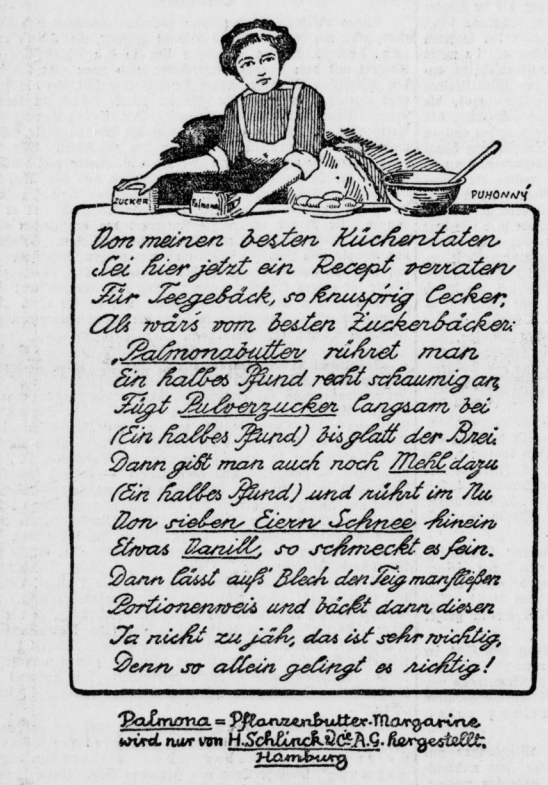 ZUCKER
Palmona
PUHONNÝ
Von meinen besten Küchentaten
Sei hier jetzt ein Recept verraten
Für Teegebäck, so knusp'rig lecker,
Als wär's vom besten Zuckerbäcker:
Palmonabutter rühret man
Ein halbes Pfund recht schaumig an,
Fügt Pulverzucker langsam bei
(Ein halbes Pfund) bis glatt der Brei.
Dann gibt man auch noch Mehl dazu
(Ein halbes Pfund) und rührt im Nu
Von sieben Eiern Schnee hinein
Etwas Vanill, so schmeckt es fein.
Dann lässt auf's Blech den Teig man fließen
Portionenweis und bäckt dann diesen
Ja nicht zu jäh, das ist sehr wichtig,
Denn so allein gelingt es richtig!
Palmona = Pflanzenbutter-Margarine
wird nur von H. Schlinck & Cie A.G. hergestellt.
Hamburg